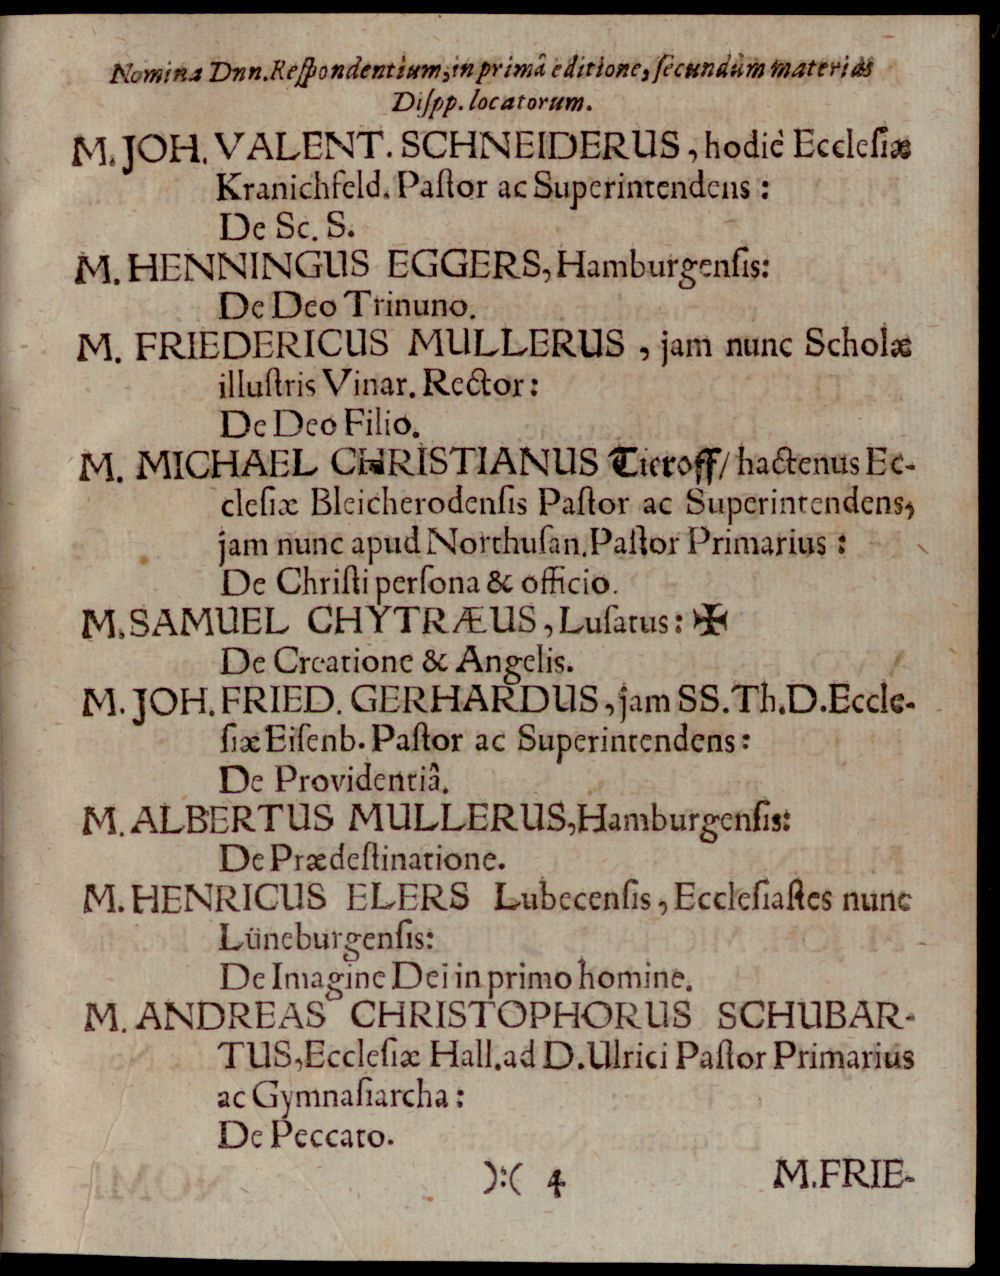 Nomina Dnn. Reſpondentium, in primâ editione, ſecundùm materias
Diſpp. locatorum.
M. JOH. VALENT. SCHNEIDERUS, hodiè Eccleſiæ
Kranichfeld. Paſtor ac Superintendens:
De Sc. S.
M. HENNINGUS EGGERS, Hamburgenſis:
De Deo Trinuno.
M. FRIEDERICUS MULLERUS, jam nunc Scholæ
illuſtris Vinar. Rector:
De Deo Filio.
M. MICHAEL CHRISTIANUS Tieroff/ hactenus Ec-
cleſiæ Bleicherodenſis Paſtor ac Superintendens,
jam nunc apud Northuſan. Paſtor Primarius:
De Chriſti perſona & officio.
M. SAMUEL CHYTRÆUS, Luſatus: ✠
De Creatione & Angelis.
M. JOH. FRIED. GERHARDUS, jam SS. Th. D. Eccle-
ſiæ Eiſenb. Paſtor ac Superintendens:
De Providentiâ.
M. ALBERTUS MULLERUS, Hamburgenſis:
De Prædeſtinatione.
M. HENRICUS ELERS Lubecenſis, Eccleſiaſtes nunc
Lüneburgenſis:
De Imagine Dei in primo homine.
M. ANDREAS CHRISTOPHORUS SCHUBAR-
TUS, Eccleſiæ Hall. ad D. Ulrici Paſtor Primarius
ac Gymnaſiarcha:
De Peccato.
):( 4 M. FRIE-